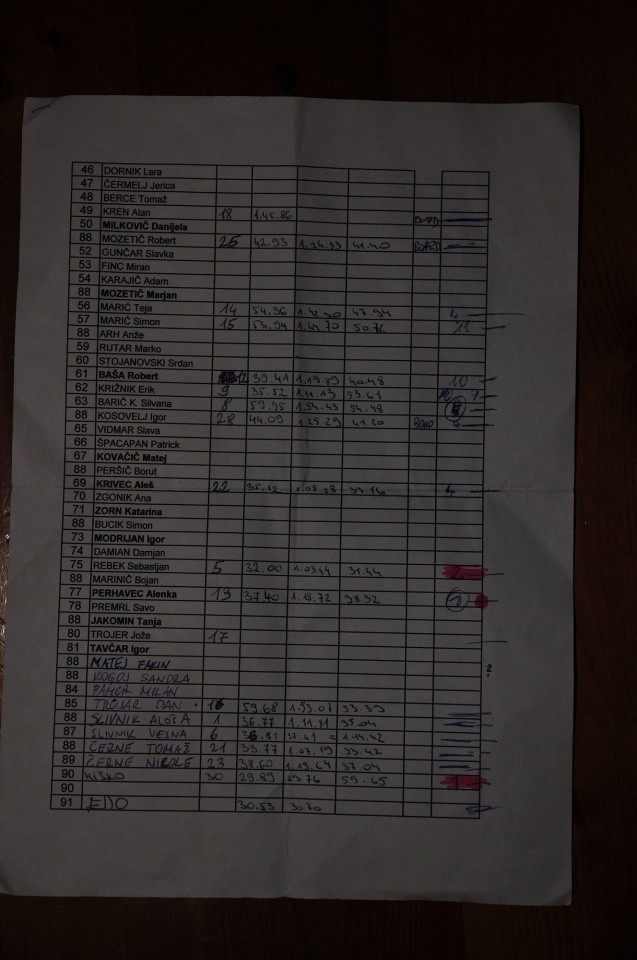 46 DORNIK Lara
47 ČERMELJ Jerica
48 BERCE Tomaž
49 KREN Alan 18 1.45.86 BOARD
50 MILKOVIČ Danijela
88 MOZETIČ Robert 26 42.93 1.24.33 41.40 BOARD
52 GUNČAR Slavka
53 FINC Miran
54 KARAJIČ Adam
88 MOZETIČ Marjan
56 MARIČ Teja 14 54.36 47.94 4
57 MARIČ Simon 15 53.94 1.44.70 50.76 11
88 ARH Anže
59 RUTAR Marko
60 STOJANOVSKI Srdan
61 BAŠA Robert 12 39.41 1.19.89 40.48 10
62 KRIŽNIK Erik 9 35.52 1.11.13 53.61 7
63 BARIČ K. Silvana 8 59.95 1.54.43 54.48
88 KOSOVELJ Igor 28 44.09 1.25.29 41.20
65 VIDMAR Slava
66 ŠPACAPAN Patrick
67 KOVAČIČ Matej
88 PERŠIČ Borut
69 KRIVEC Aleš 22 35.12 4
70 ZGONIK Ana
71 ZORN Katarina
88 BUCIK Simon
73 MODRIJAN Igor
74 DAMIAN Damjan
75 REBEK Sebastjan 5 32.00 31.44 2
88 MARINIČ Bojan
77 PERHAVEC Alenka 13 37.40 1.15.72 38.32
78 PREMRL Savo
88 JAKOMIN Tanja
80 TROJER Jože 17
81 TAVČAR Igor
88 MATEJ FAKIN ?
88 KOGOJ SANDRA
84 MILAN
85 DAN 16 59.68 1.53.07 53.39
88 SLIVNIK ALOŠA 1 36.77 1.11.81 35.04
87 SLIVNIK VESNA 6 1.14.42
88 ČERNE TOMAŽ 21 33.77 1.07.19 33.42
89 ČERNE NICOLE 23 38.60 1.15.64 37.04
90 30 29.89 29.76 59.65 1
90
91 EDO 30.53